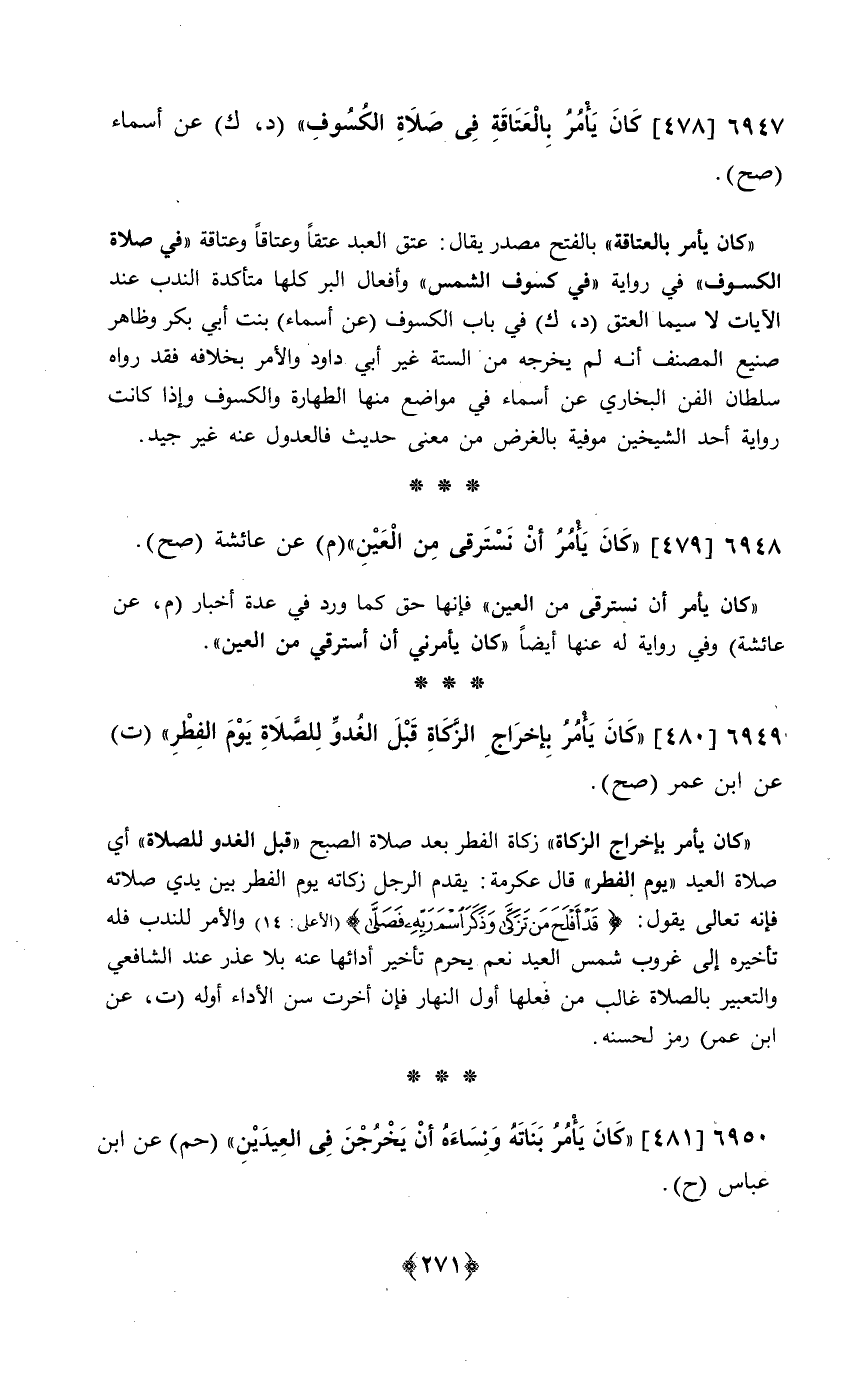 ٦٩٤٧ [٤٧٨] كَانَ يَأْمُرُ بِالْعَتَاقَةِ فِى صَلَاةِ الكُسُوفِ» (د، ك) عن أسماء
(صح).
«كان يأمر بالعتاقة» بالفتح مصدر يقال: عتق العبد عتقاً وعتاقاً وعتاقة «في صلاة
الكسوف» في رواية «في كسوف الشمس» وأفعال البر كلها متأكدة الندب عند
الآيات لا سيما العتق (د، ك) في باب الكسوف (عن أسماء) بنت أبي بكر وظاهر
صنيع المصنف أنه لم يخرجه من الستة غير أبي داود والأمر بخلافه فقد رواه
سلطان الفن البخاري عن أسماء في مواضع منها الطهارة والكسوف وإذا كانت
رواية أحد الشيخين موفية بالغرض من معنى حديث فالعدول عنه غير جيد.
* * *
٦٩٤٨ [٤٧٩] «كَانَ يَأْمُرُ أنْ نَسْتَرقى مِن الْعَيْنِ»(م) عن عائشة (صح).
«كان يأمر أن نسترقى من العين» فإنها حق كما ورد في عدة أخبار (م، عن
عائشة) وفي رواية له عنها أيضاً «كان يأمرني أن أسترقي من العين».
* * *
٦٩٤٩ [٤٨٠] «كَانَ يَأْمُرُ بِإخرَاجِ الزَّكَاةِ قَبْلَ الغُدوِّ لِلصَّلَاةِ يَوْمَ الفِطْرِ» (ت)
عن ابن عمر (صح).
«كان يأمر بإخراج الزكاة» زكاة الفطر بعد صلاة الصبح «قبل الغدو للصلاة» أي
صلاة العيد «يوم الفطر» قال عكرمة: يقدم الرجل زكاته يوم الفطر بين يدي صلاته
فإنه تعالى يقول: ﴿ قَدْ أَفْلَحَ مَن تَزَكَّىٰ وَذَكَرَ ٱسْمَ رَبِّهِۦ فَصَلَّىٰ ﴾ (الأعلى: ١٤) والأمر للندب فله
تأخيره إلى غروب شمس العيد نعم يحرم تأخير أدائها عنه بلا عذر عند الشافعي
والتعبير بالصلاة غالب من فعلها أول النهار فإن أخرت سن الأداء أوله (ت، عن
ابن عمر) رمز لحسنه.
* * *
٦٩٥٠ [٤٨١] «كَانَ يَأْمُرُ بَنَاتَهُ وَنِسَاءَهُ أنْ يَخْرُجْنَ فِى العِيدَيْنِ» (حم) عن ابن
عباس (ح).
﴿٢٧١﴾